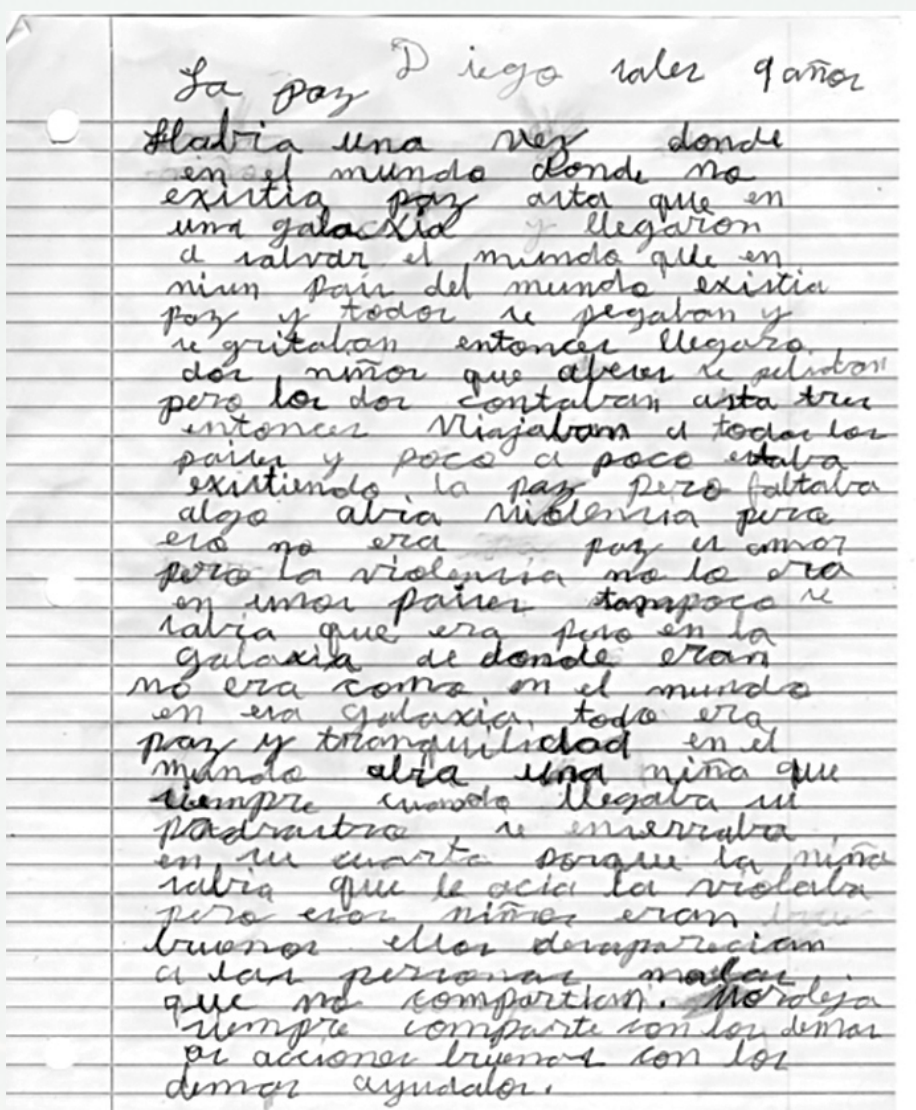 La paz Diego saler 9 años
Habia una vez donde
en el mundo donde no
existia paz asta que en
una galacxia y llegaron
a salvar el mundo que en
niun pais del mundo existia
paz y todos se pegaban y
se gritaban entonces llegaro
dos niños que abeses se peliaban
pero los dos contaban asta tres
entonces viajabam a todos los
paises y poco a poco estaba
existiendo la paz pero faltaba
algo abia violencia pero
eso no era paz es amor
pero la violencia no lo era
en unos paises tampoco se
sabia que era pero en la
galaxia de donde eran
no era como en el mundo
en esa galaxia todo era
paz y tranquilidad en el
mundo abia una niña que
siempre cuando llegaba su
padrastro se enserraba
en su cuarto porque la niña
sabia que le acia la violaba
pero esos niños eran
buenos ellos desaparecian
a las personas malas
que no compartian. Moraleja
siempre comparte con los demas
as acciones buenas con los
demas ayudalos.